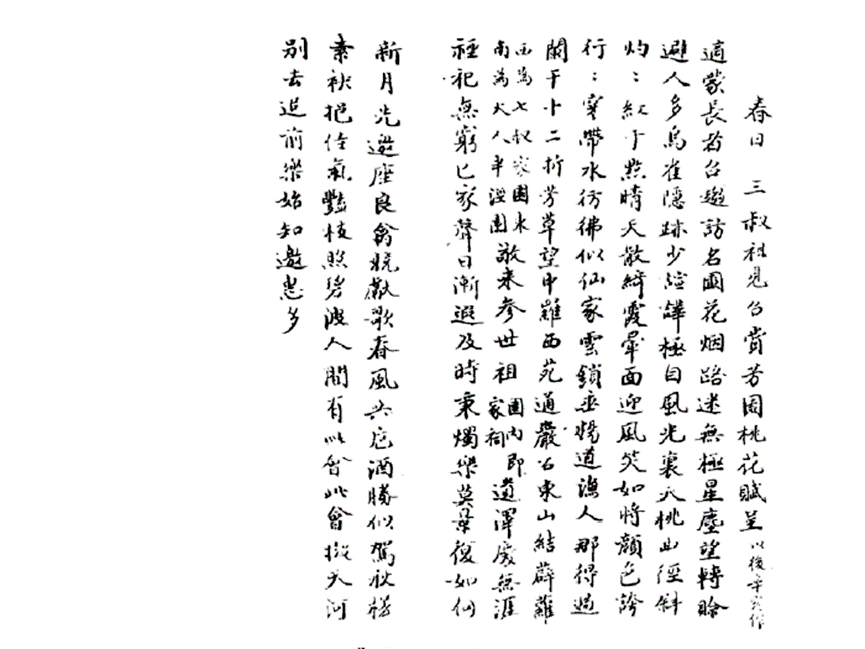 春日三叔祖見召賞芳園桃花賦呈以後辛亥作
適蒙長者召邀訪名園花烟路迷無極星塵望轉賒
避人多鳥雀隱跡少諠譁極目風光裏夭桃曲徑斜
灼〻紅于點晴天散綺霞暈面迎風笑如將顏色誇
行〻穿帶水彷彿似仙家雲鎖垂楊道漁人那得過
闌干十二折芳草望中離西苑通巖石東山結薜蘿
西為七叔家園東南為大人半淫園敬來參世祖園內即家祠道澤慶無涯
種祀無窮已家聲日漸遐及時秉燭樂莫景復如何
新月光邀座良禽晚獻歌春風共卮酒勝似駕秋槎
素秋挹佳氣豔枝照碧波人間有此會此會擬天河
別去追前樂始知邀惠多